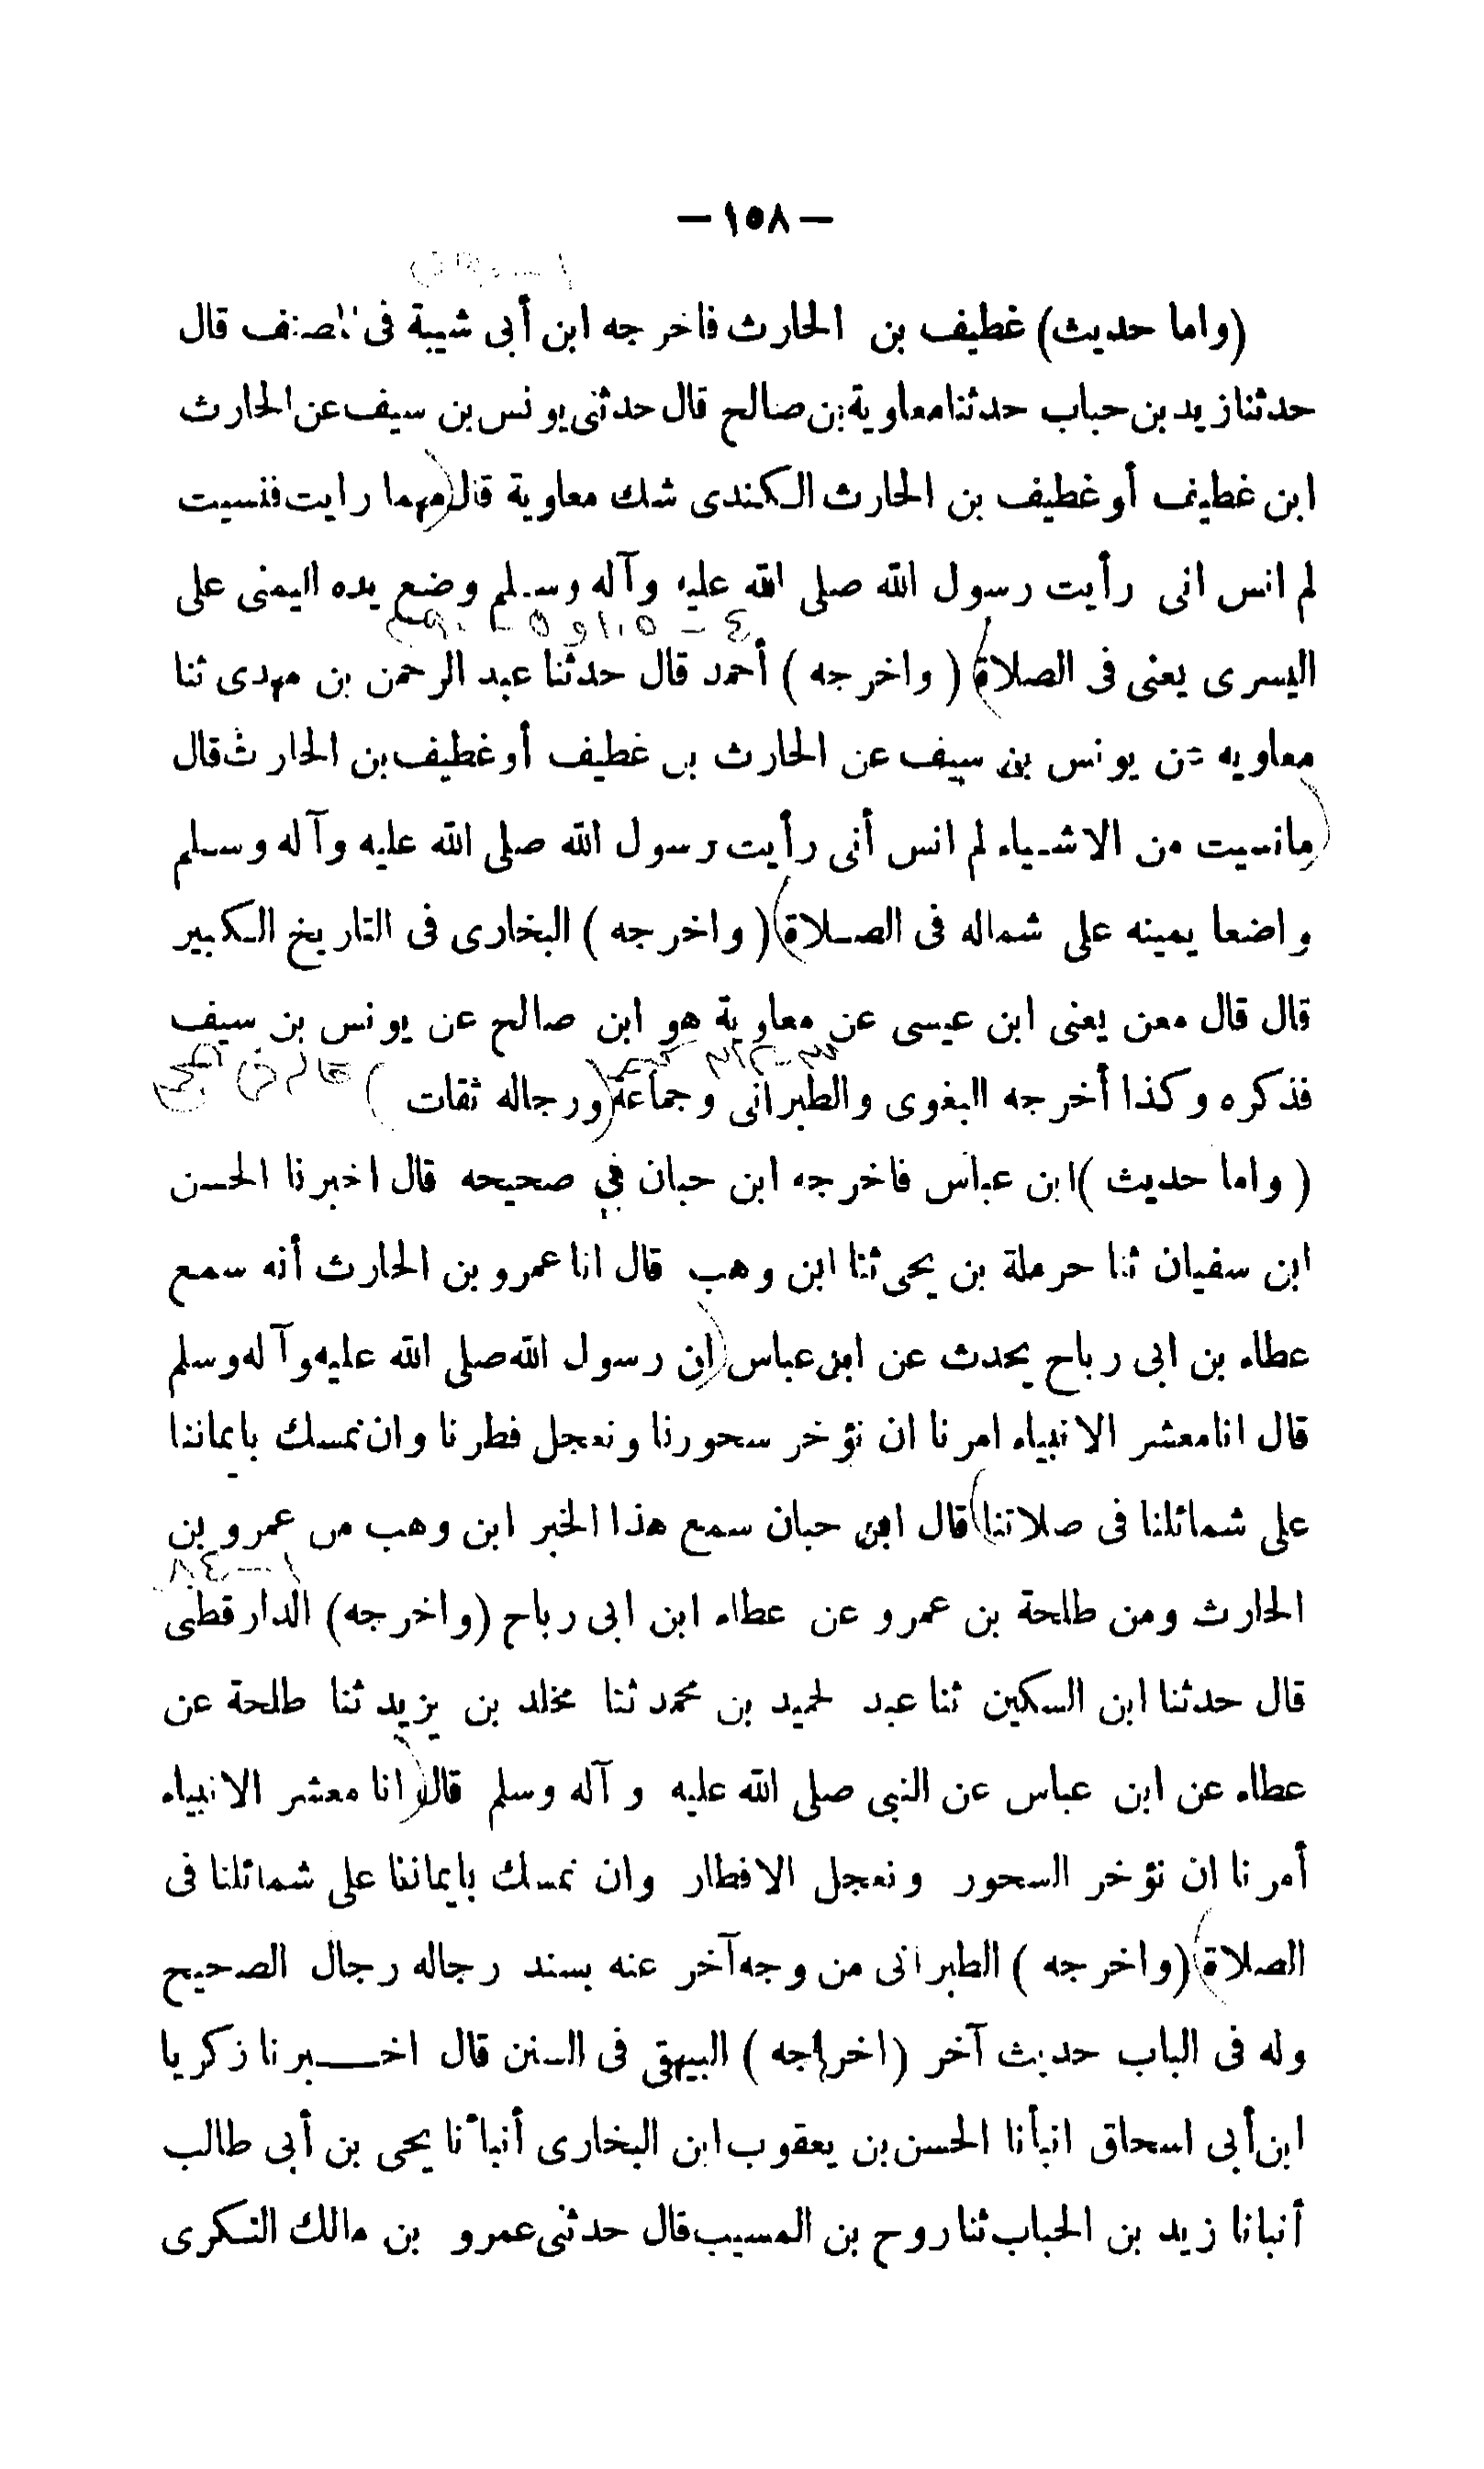 — ١٥٨ —
(واما حديث) غطيف بن الحارث فاخرجه ابن أبى شيبة فى المصنف قال
حدثنا زيد بن حباب حدثنا معاوية بن صالح قال حدثنى يونس بن سيف عن الحارث
ابن غطيف أو غطيف بن الحارث الكندى شك معاوية قال (مهما رايت فنسيت
لم انس انى رأيت رسول الله صلى الله عليه وآله وسلم وضع يده اليمنى على
اليسرى يعنى فى الصلاة) (واخرجه) أحمد قال حدثنا عبد الرحمن بن مهدى ثنا
معاويه عن يونس بن سيف عن الحارث بن غطيف أو غطيف بن الحارث قال
(مانسيت من الاشياء لم انس أنى رأيت رسول الله صلى الله عليه وآله وسلم
واضعا يمينه على شماله فى الصلاة) (واخرجه) البخارى فى التاريخ الكبير
قال قال معن يعنى ابن عيسى عن معاوية هو ابن صالح عن يونس بن سيف
فذكره وكذا أخرجه البغوى والطبرانى وجماعة (ورجاله ثقات)
(واما حديث) ابن عباس فاخرجه ابن حبان في صحيحه قال اخبرنا الحسن
ابن سفيان ثنا حرملة بن يحى ثنا ابن وهب قال انا عمرو بن الحارث أنه سمع
عطاء بن ابى رباح يحدث عن ابن عباس (ان رسول الله صلى الله عليه وآله وسلم
قال انا معشر الانبياء امرنا ان نؤخر سحورنا ونعجل فطرنا وان نمسك بايماننا
على شمائلنا فى صلاتنا) قال ابن حبان سمع هذا الخبر ابن وهب من عمرو بن
الحارث ومن طلحة بن عمرو عن عطاء ابن ابى رباح (واخرجه) الدارقطنى
قال حدثنا ابن السكين ثنا عبد لحميد بن محمد ثنا مخلد بن يزيد ثنا طلحة عن
عطاء عن ابن عباس عن النبى صلى الله عليه وآله وسلم قال (انا معشر الانبياء
أمرنا ان نؤخر السحور ونعجل الافطار وان نمسك بايماننا على شمائلنا فى
الصلاة) (واخرجه) الطبرانى من وجه آخر عنه بسند رجاله رجال الصحيح
وله فى الباب حديث آخر (اخراجه) البيهقى فى السنن قال اخبرنا زكريا
ابن أبى اسحاق انبأنا الحسن بن يعقوب ابن البخارى أنبأنا يحى بن أبى طالب
أنبانا زيد بن الحباب ثنا روح بن المسيب قال حدثنى عمرو بن مالك النكرى